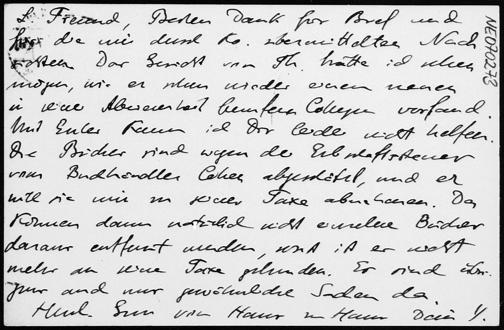 L. Freund, Besten Dank für Brief und
für die mir durch Ko. übermittelten Nach
richten. Das Gesicht von Th. hätte ich sehen
mögen, wie er schon wieder einen neuen
in seine Abwesenheit berufenen Collegen vorfand.
Mit Euler kann ich Dir leider nicht helfen.
Die Bücher sind wegen der Erbschaftssteuer
vom Buchhändler Cohen abgeschätzt, und er
will sie mir zu seiner Taxe abnehmen. Da
können dann natürlich nicht einzelne Bücher
daraus entfernt werden, sonst ist er nicht
mehr an seine Taxe gebunden. Es sind übri-
gens auch nur gewöhnliche Sachen da.
Herzl. Gruss von Haus zu Haus Dein
NE070273